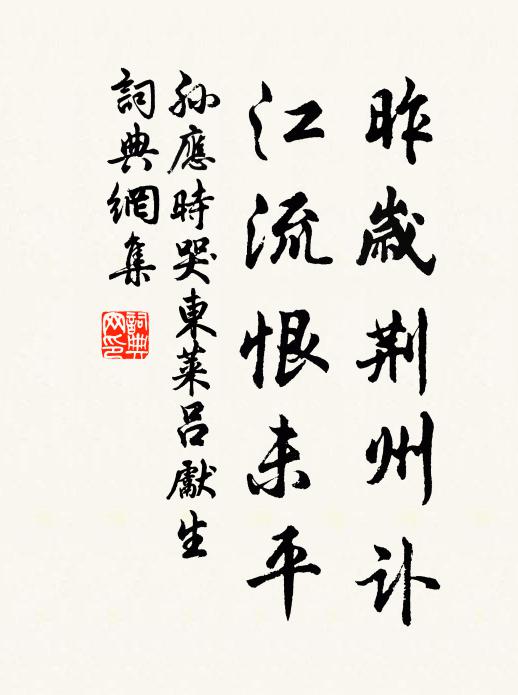 昨歲荆州訃
江流恨未平
孫應時哭東萊呂獻生
詞典網集
詞典網印